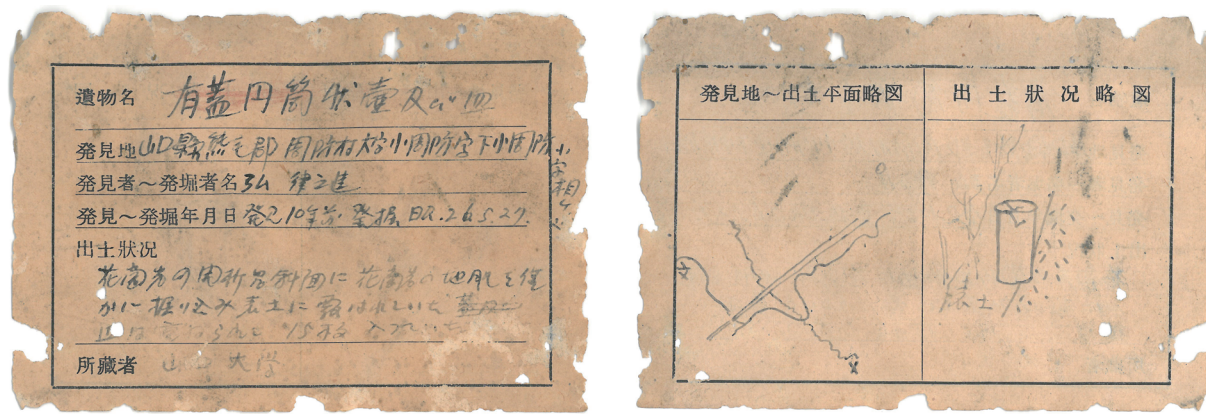 遺物名 有蓋円筒状壷及び皿
発見地 山口縣熊毛郡周防村大字小周防字下小周防
小字相
発見者～発掘者名 弘 津之進
発見～発掘年月日 発見10年前 発掘 昭.26.5.27.
出土狀況
花崗岩の開析谷斜面に花崗岩の地肌を僅
かに掘り込み表土に露はれていた
皿は 15枚 入れ
所藏者 山口大学
発見地～出土平面略図
出土狀况略図
表土